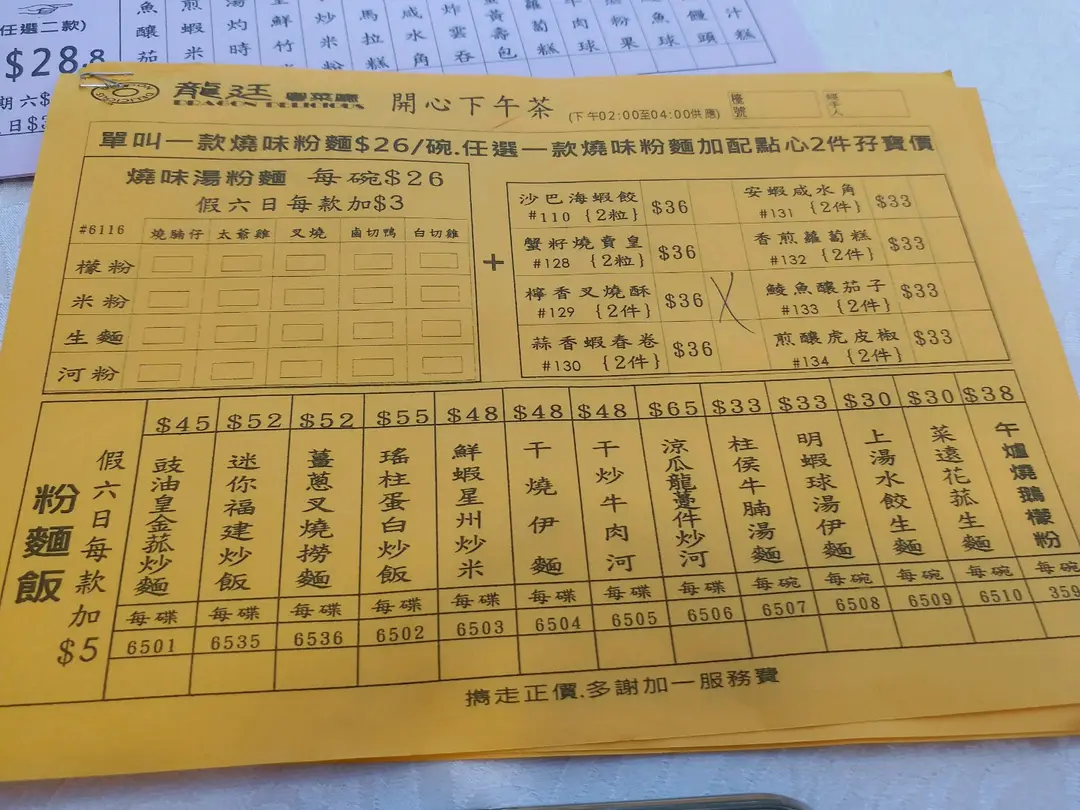 任選二款)
$28.8
期六$
日$
龍廷 粵菜廳
DRAGON DELICIOUS
開心下午茶
(下午02:00至04:00供應)
檯號
經手人
單叫一款燒味粉麵$26/碗.任選一款燒味粉麵加配點心2件孖寶價
燒味湯粉麵 每碗$26
假六日每款加$3
#6116 燒腩仔 太爺雞 叉燒 鹵切鴨 白切雞
檬粉
米粉
生麵
河粉
+
沙巴海蝦餃 #110 {2粒} $36
蟹籽燒賣皇 #128 {2粒} $36
檸香叉燒酥 #129 {2件} $36
蒜香蝦春卷 #130 {2件} $36
安蝦咸水角 #131 {2件} $33
香煎蘿蔔糕 #132 {2件} $33
鯪魚釀茄子 #133 {2件} $33
煎釀虎皮椒 #134 {2件} $33
粉麵飯
假六日每款加$5
$45 豉油皇金菰炒麵 每碟 6501
$52 迷你福建炒飯 每碟 6535
$52 薑蔥叉燒撈麵 每碟 6536
$55 瑤柱蛋白炒飯 每碟 6502
$48 鮮蝦星州炒米 每碟 6503
$48 干燒伊麵 每碟 6504
$48 干炒牛肉河 每碟 6505
$65 涼瓜龍躉件炒河 每碟 6506
$33 柱侯牛腩湯麵 每碗 6507
$33 明蝦球湯伊麵 每碗 6508
$30 上湯水餃生麵 每碗 6509
$30 菜遠花菰生麵 每碗 6510
$38 午爐燒鵝檬粉 每碗 359
攜走正價.多謝加一服務費